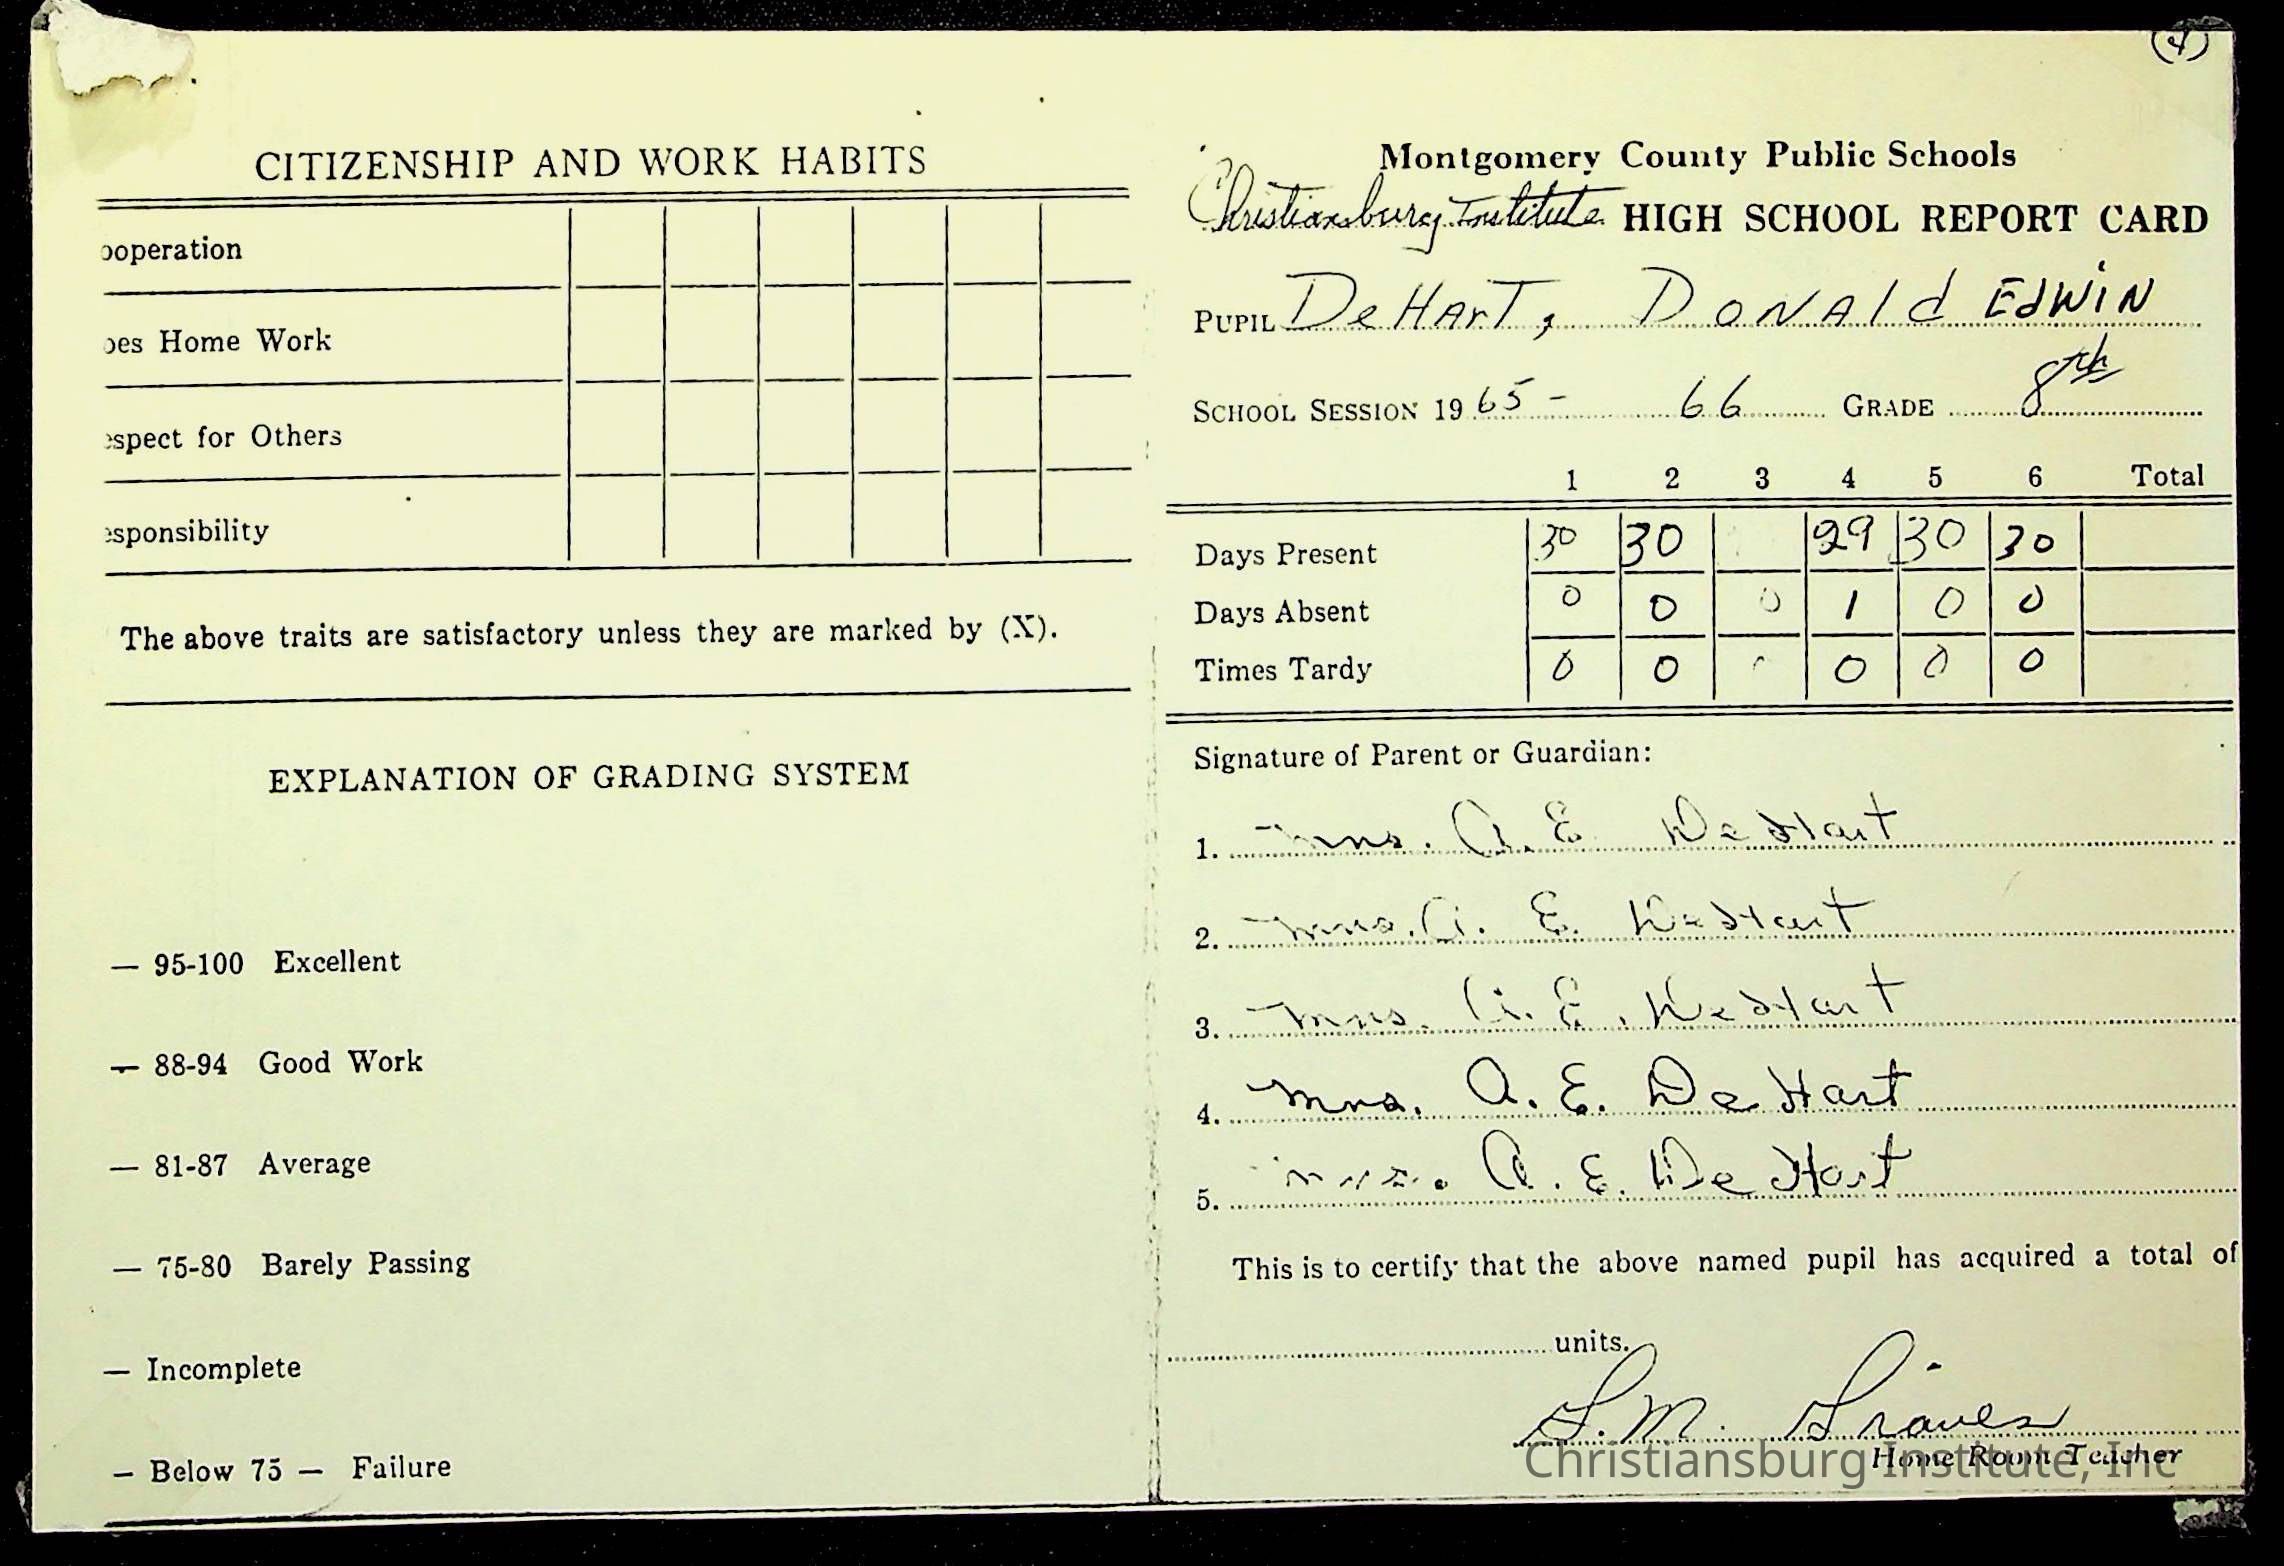 CITIZENSHIP AND WORK HABITS
ooperation
oes Home Work
espect for Others
esponsibility
The above traits are satisfactory unless they are marked by (X).
EXPLANATION OF GRADING SYSTEM
— 95-100 Excellent
— 88-94 Good Work
— 81-87 Average
— 75-80 Barely Passing
— Incomplete
— Below 75 — Failure
Montgomery County Public Schools
Christiansburg Institute HIGH SCHOOL REPORT CARD
PUPIL DeHArT, DONAld EdWiN
SCHOOL SESSION 19 65 - 66 GRADE 8th
1 2 3 4 5 6 Total
Days Present 30 30 29 30 30
Days Absent 0 0 0 1 0 0
Times Tardy 0 0 0 0 0
Signature of Parent or Guardian:
1. Mrs. A. E. DeHart
2. Mrs. A. E. DeHart
3. Mrs. A. E. DeHart
4. Mrs. A. E. DeHart
5. Mrs. A. E. DeHart
This is to certify that the above named pupil has acquired a total of
units.
S. M. Graves
Home Room Teacher
Christiansburg Institute, Inc